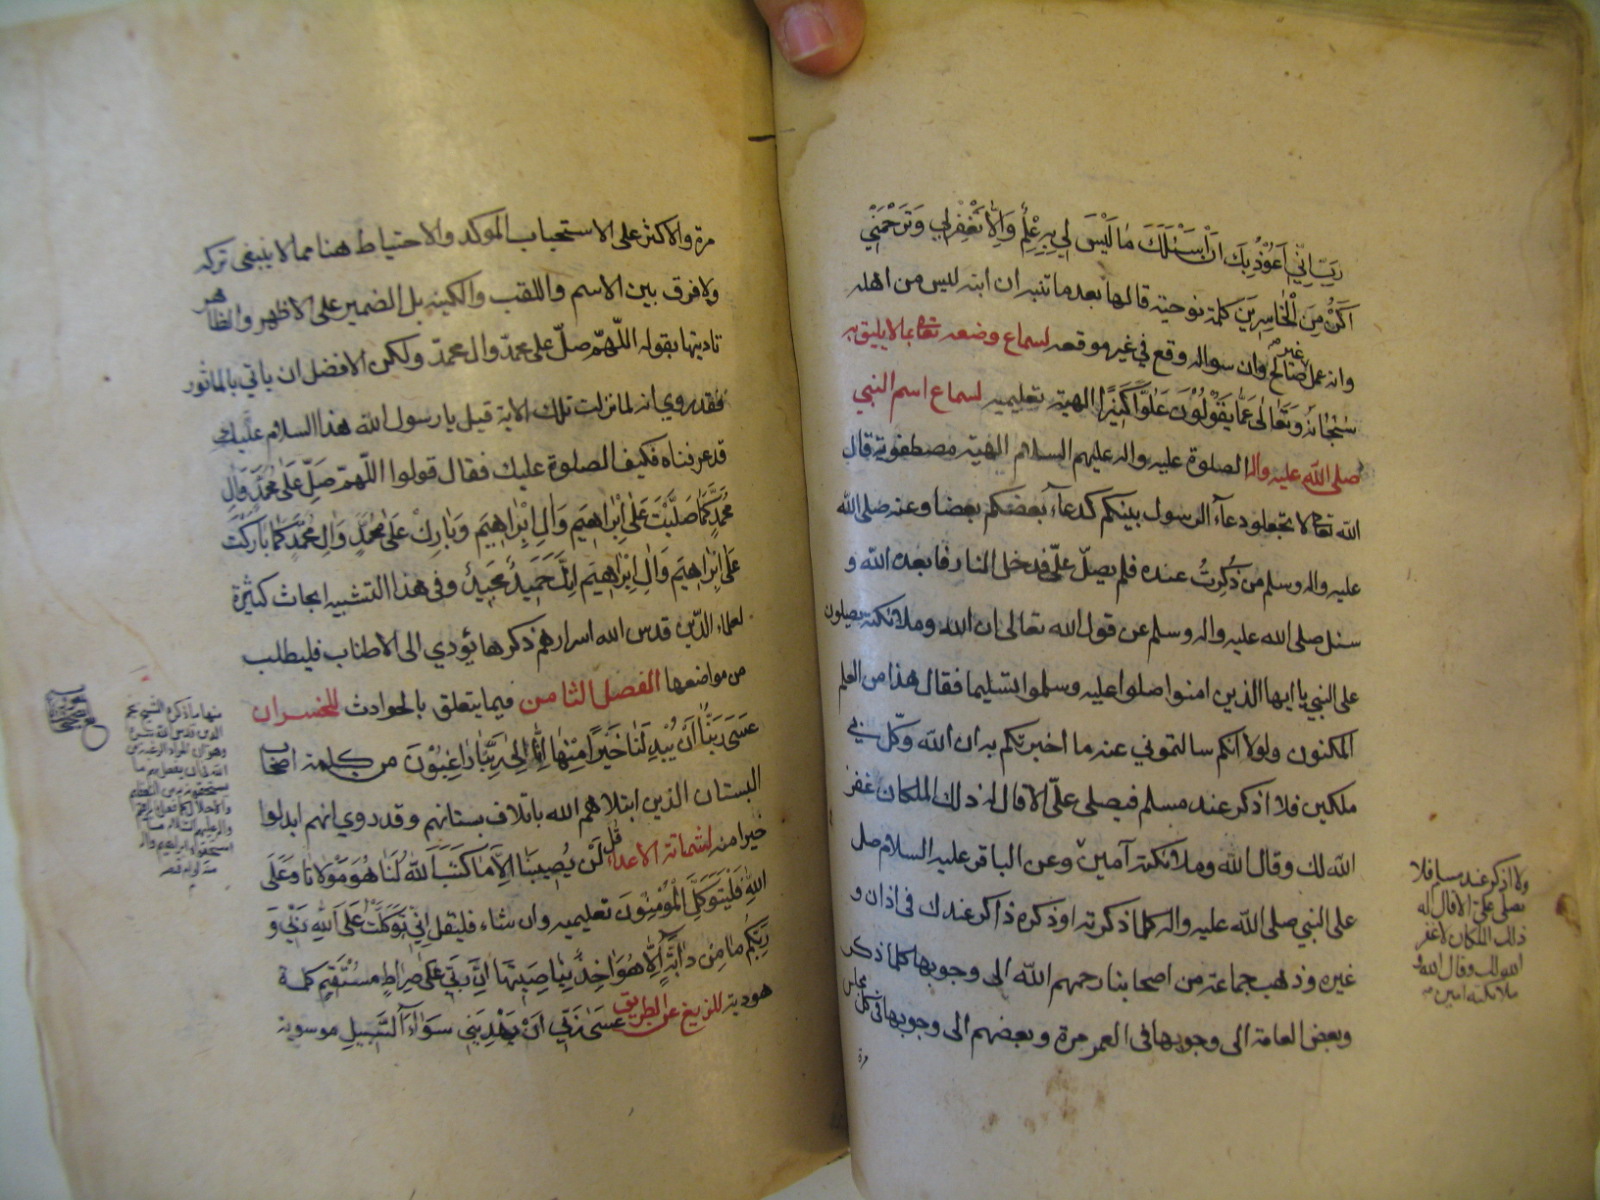 رَبِّ اِنّي اَعُوذُ بِكَ اَنْ اَسْئَلَكَ مَا لَيْسَ لِي بِهِ عِلْمٌ وَاِلَّا تَغْفِرْ لِي وَتَرْحَمْنِي
اَكُنْ مِنَ الْخَاسِرِينَ كلمة نوحية قالها بعد ما تنبه ان ابنه ليس من اهله
وانه عمل غير صالح وان سواله وقع في غير موقعه لسماع وضعه تعالى بما لا يليق به
سُبْحَانَهُ وَتَعَالٰى عَمَّا يَقُولُونَ عُلُوًّا كَبِيرًا الهية تعليميه لسماع اسم النبي
صلى الله عليه واله الصلوة عليه واله عليهم السلام الهية مصطفوية قال
الله تعالى لا تجعلو دعاء الرسول بينكم كدعاء بعضكم بعضا وعنه صلى الله
عليه واله وسلم من ذُكِرتُ عنده فلم يصلّ علىّ فدخل النار فابعده الله و
سئل صلى الله عليه واله وسلم عن قول الله تعالى ان الله وملائكته يصلون
على النبي يا ايها الذين امنوا صلوا عليه وسلموا تسليما فقال هذا من العلم
المكنون ولولا انكم سالتموني عنه ما اخبرتكم به ان الله وكّل بي
ملكين فلا اذكر عند مسلم فيصلي علىّ الا قال له ذلك الملكان غفر
الله لك وقال الله وملائكته آمين وعن الباقر عليه السلام صل
على النبي صلى الله عليه واله كلما ذكرته او ذكره ذاكر عندك في اذان و
غيره وذهب جماعة من اصحابنا رحمهم الله الى وجوبها كلما ذكر
وبعض العامة الى وجوبها في العمر مرة وبعضهم الى وجوبها في كل مجلس
مرة
ولا اذكر عند مسلم فلا
يصلي علىّ الا قال له
ذلك الملكان لا غفر
الله لك وقال الله و
ملائكته امين
مرة والاكثر على الاستحباب الموكد والاحتياط هنا مما لا ينبغي تركه
ولا فرق بين الاسم واللقب والكنية بل الضمير على الاظهر والظاهر
تاديتها بقوله اللّهمّ صلّ على محمدّ وال محمدّ ولكن الافضل ان ياتي بالماثور
فقد روي انه لما نزلت تلك الاية قيل يا رسول الله هذا السلام عليك
قد عرفناه فكيف الصلوة عليك فقال قولوا اللّهمّ صَلِّ عَلٰى مُحَمَّدٍ وَآلِ
مُحَمَّدٍ كَمَا صَلَّيْتَ عَلٰى اِبْرَاهِيمَ وَآلِ اِبْرَاهِيمَ وَبَارِكْ عَلٰى مُحَمَّدٍ وَآلِ مُحَمَّدٍ كَمَا بَارَكْتَ
عَلٰى اِبْرَاهِيمَ وَآلِ اِبْرَاهِيمَ اِنَّكَ حَمِيدٌ مَجِيدٌ وفي هذا التشبيه ابحاث كثيرة
لعلماء الدّين قدس الله اسرارهم ذكرها يؤدي الى الاطناب فليطلب
من مواضعها الفصل الثامن فيما يتعلق بالحوادث للخسران
عَسَى رَبُّنَا اَنْ يُبْدِلَنَا خَيْرًا مِنْهَا اِنَّا اِلٰى رَبِّنَا رَاغِبُونَ من كلمة اصحاب
البستان الذين ابتلاهم الله باتلاف بستانهم وقد روي انهم ابدلوا
خيرا منه لشماتة الاعداء قُل لَنْ يُصِيبَنَا اِلَّا مَا كَتَبَ اللهُ لَنَا هُوَ مَوْلَانَا وَعَلَى
اللهِ فَلْيَتَوَكَّلِ الْمُؤْمِنُونَ تعليميه وان شاء فليقل اِنِّي تَوَكَّلْتُ عَلَى اللهِ رَبِّي وَ
رَبِّكُمْ مَا مِنْ دَابَّةٍ اِلَّا هُوَ آخِذٌ بِنَاصِيَتِهَا اِنَّ رَبِّي عَلٰى صِرَاطٍ مُسْتَقِيمٍ كلمة
هودية للزيغ عن الطريق عَسٰى رَبِّي اَنْ يَهْدِيَنِي سَوَاءَ السَّبِيلِ موسوية
منها ما ذكره الشيخ